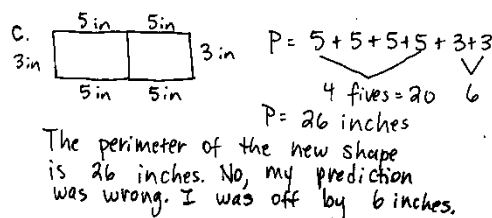 C. 5 in 5 in
3 in 3 in
5 in 5 in
P = 5 + 5 + 5 + 5 + 3 + 3
4 fives = 20 6
P = 26 inches
The perimeter of the new shape
is 26 inches. No, my prediction
was wrong. I was off by 6 inches.